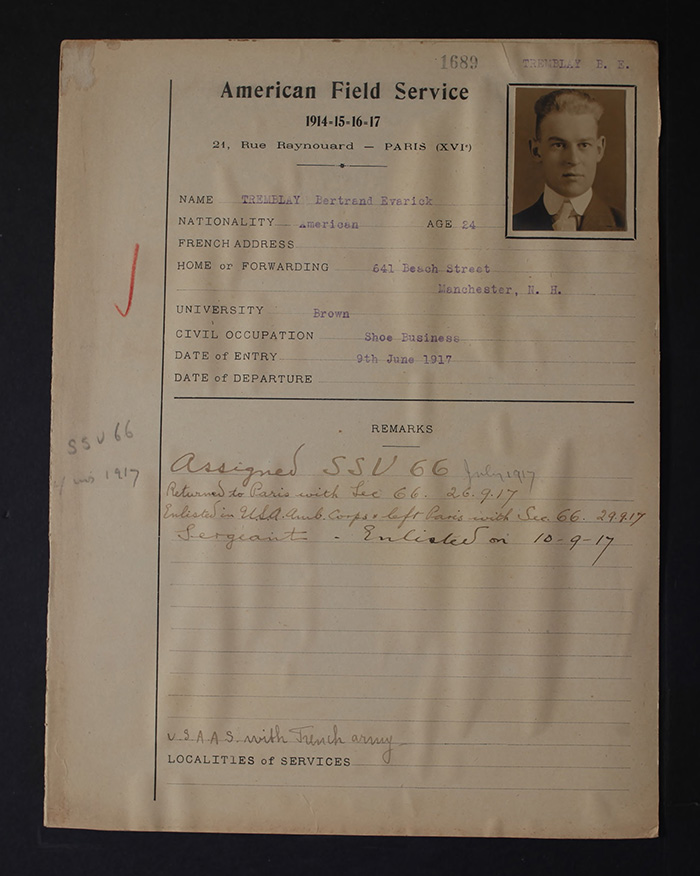 1689 TREMBLAY B. E.
American Field Service
1914-15-16-17
21, Rue Raynouard — PARIS (XVIe)
NAME TREMBLAY Bertrand Everick
NATIONALITY American AGE 24
FRENCH ADDRESS
HOME or FORWARDING 641 Beach Street
Manchester, N. H.
UNIVERSITY Brown
CIVIL OCCUPATION Shoe Business
DATE of ENTRY 9th June 1917
DATE of DEPARTURE
REMARKS
SSU 66
1917
Assigned SSU 66 July 1917
Returned to Paris with Sec 66. 26.9.17
Enlisted in U.S.A. Amb. Corps & left Paris with Sec. 66. 29.9.17
Sergeant - Enlisted on 10-9-17
USAAS with French army
LOCALITIES of SERVICES